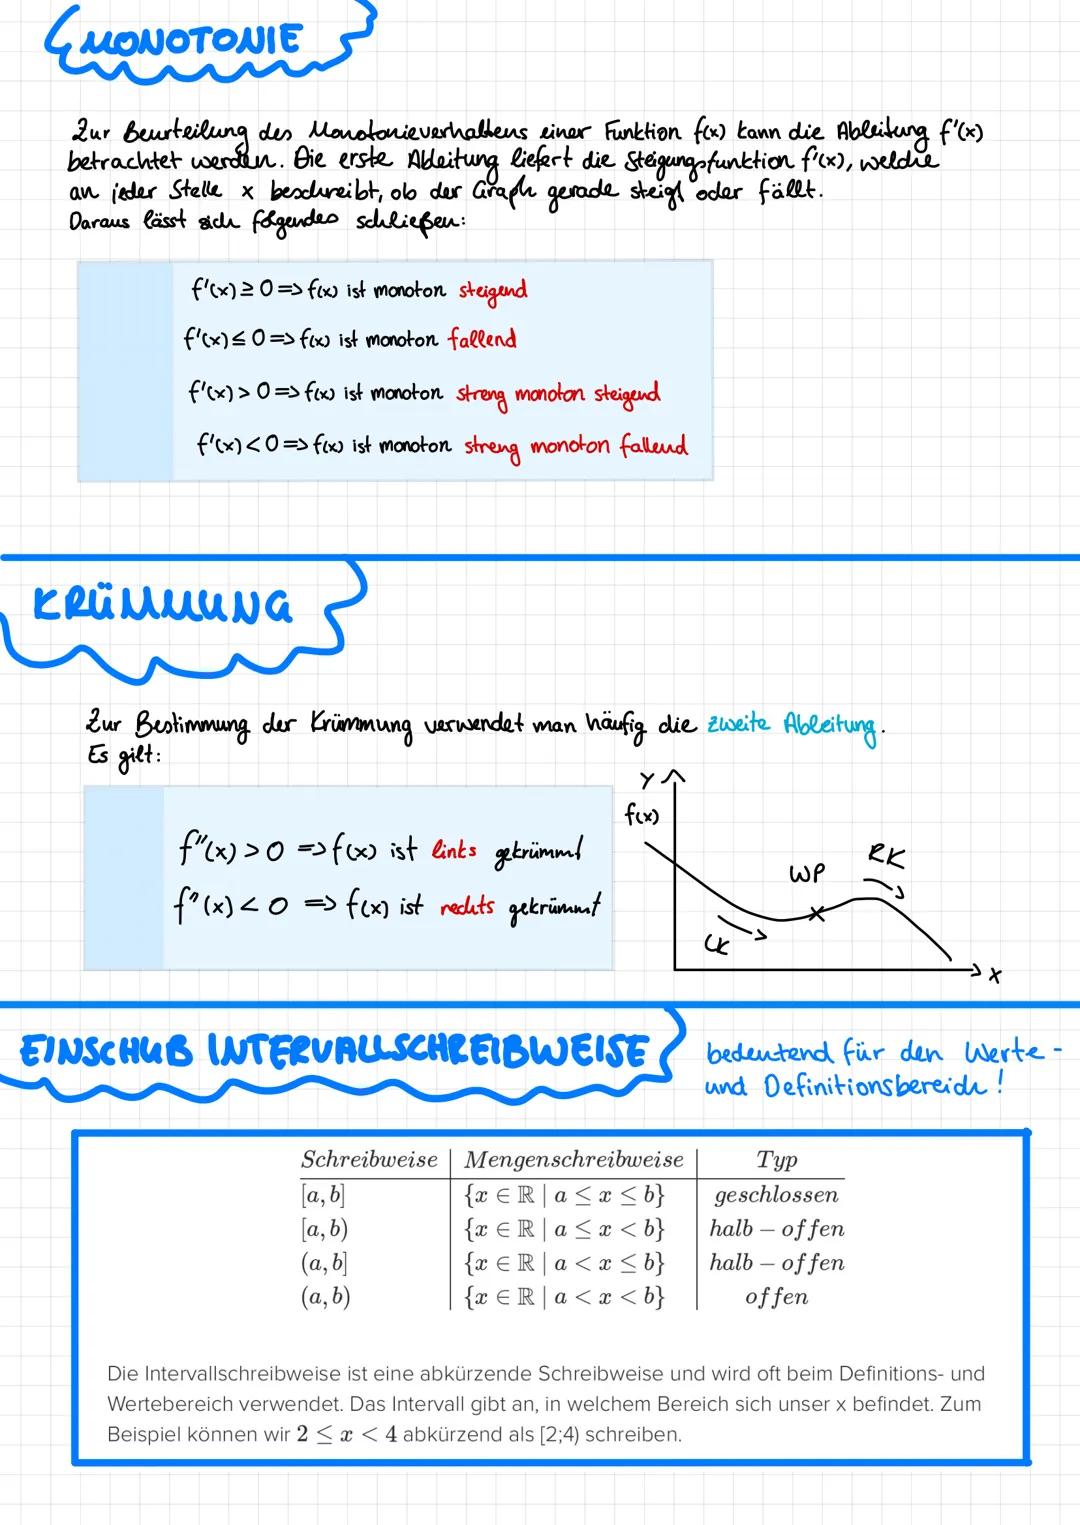 MONOTONIE
Zur Beurteilung des Monotonieverhaltens einer Funktion f(x) kann die Ableitung f'(x)
betrachtet werden. Die erste Ableitung liefert die Steigungsfunktion f'(x), welche
an jeder Stelle x beschreibt, ob der Graph gerade steigt oder fällt.
Daraus lässt sich folgendes schließen:
f'(x) ≥ 0 => f(x) ist monoton steigend
f'(x) ≤ 0 => f(x) ist monoton fallend
f'(x) > 0 => f(x) ist monoton streng monoton steigend
f'(x) < 0 => f(x) ist monoton streng monoton fallend
KRÜMMUNG
Zur Bestimmung der Krümmung verwendet man häufig die zweite Ableitung.
Es gilt:
f''(x) > 0 => f(x) ist links gekrümmt
f''(x) < 0 => f(x) ist rechts gekrümmt
y
f(x)
WP
RK
LK
x
EINSCHUB INTERVALLSCHREIBWEISE
bedeutend für den Werte-
und Definitionsbereich!
Schreibweise | Mengenschreibweise | Typ
[a, b] | {x ∈ ℝ | a ≤ x ≤ b} | geschlossen
[a, b) | {x ∈ ℝ | a ≤ x < b} | halb – offen
(a, b] | {x ∈ ℝ | a < x ≤ b} | halb – offen
(a, b) | {x ∈ ℝ | a < x < b} | offen
Die Intervallschreibweise ist eine abkürzende Schreibweise und wird oft beim Definitions- und
Wertebereich verwendet. Das Intervall gibt an, in welchem Bereich sich unser x befindet. Zum
Beispiel können wir 2 ≤ x < 4 abkürzend als [2;4) schreiben.